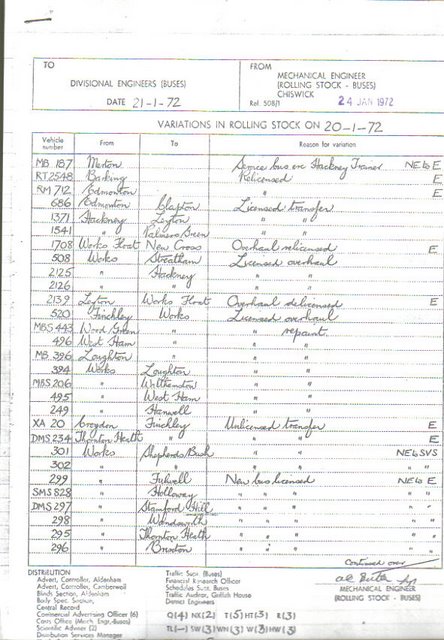 TO
DIVISIONAL ENGINEERS (BUSES)
DATE 21-1-72
FROM
MECHANICAL ENGINEER
(ROLLING STOCK - BUSES)
CHISWICK
Ref. 508/1 24 JAN 1972
VARIATIONS IN ROLLING STOCK ON 20-1-72
Vehicle number From To Reason for variation
MB 187 Merton Service bus ex Hackney Trainer NE to E
RT 2548 Barking Relicensed E
RM 712 Edmonton " E
686 Edmonton Clapton Licensed transfer
1371 Hackney Leyton " "
1541 " Palmers Green " "
1708 Works Float New Cross Overhaul relicensed E
508 Works Streatham Licensed overhaul
2125 " Hackney " "
2126 " " " "
2139 Leyton Works Float Overhaul delicensed E
520 Finchley Works Licensed overhaul
MBS 443 Wood Green " " repaint
496 West Ham " " "
MB 396 Loughton " " "
394 Works Loughton " "
MBS 206 " Walthamstow " "
495 " West Ham " "
249 " Hanwell " "
XA 20 Croydon Finchley Unlicensed transfer E
DMS 234 Thornton Heath " " " E
301 Works Shepherds Bush " " NE to SVS
302 " " " " "
299 " Fulwell New bus licensed NE to E
SMS 828 " Holloway " " " "
DMS 297 " Stamford Hill " " " "
298 " Wandsworth " " " "
295 " Thornton Heath " " " "
296 " Brixton " " " "
Continued over
DISTRIBUTION
Advert. Controller, Aldenham
Advert. Controller, Camberwell
Blinds Section, Aldenham
Body Spec. Section,
Central Record
Commercial Advertising Officer (6)
Costs Office (Mech. Engr.-Buses)
Scientific Adviser (2)
Distribution Services Manager
Traffic Supt. (Buses)
Financial Research Officer
Schedules Supt. Buses
Traffic Auditor, Griffith House
District Engineers
Q(4) NX(2) T(5) HT(3) R(3)
TL(-) SW(3) WN(3) W(3) HW(3)
MECHANICAL ENGINEER
(ROLLING STOCK - BUSES)